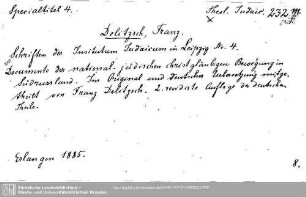 Specialtitel 4.
Theol. Judaic. 232 m
Delitzsch, Franz
Schriften des Institutum Judaicum in Leipzig Nr. 4.
Documente der national-jüdischen christgläubigen Bewegung in
Südrussland. Im Original und deutscher Uebersetzung mitge-
theilt von Franz Delitzsch. 2. revidirte Auflage des deutschen
Theils.
Erlangen 1885.
8.
Sächsische Landesbibliothek -
Staats- und Universitätsbibliothek Dresden